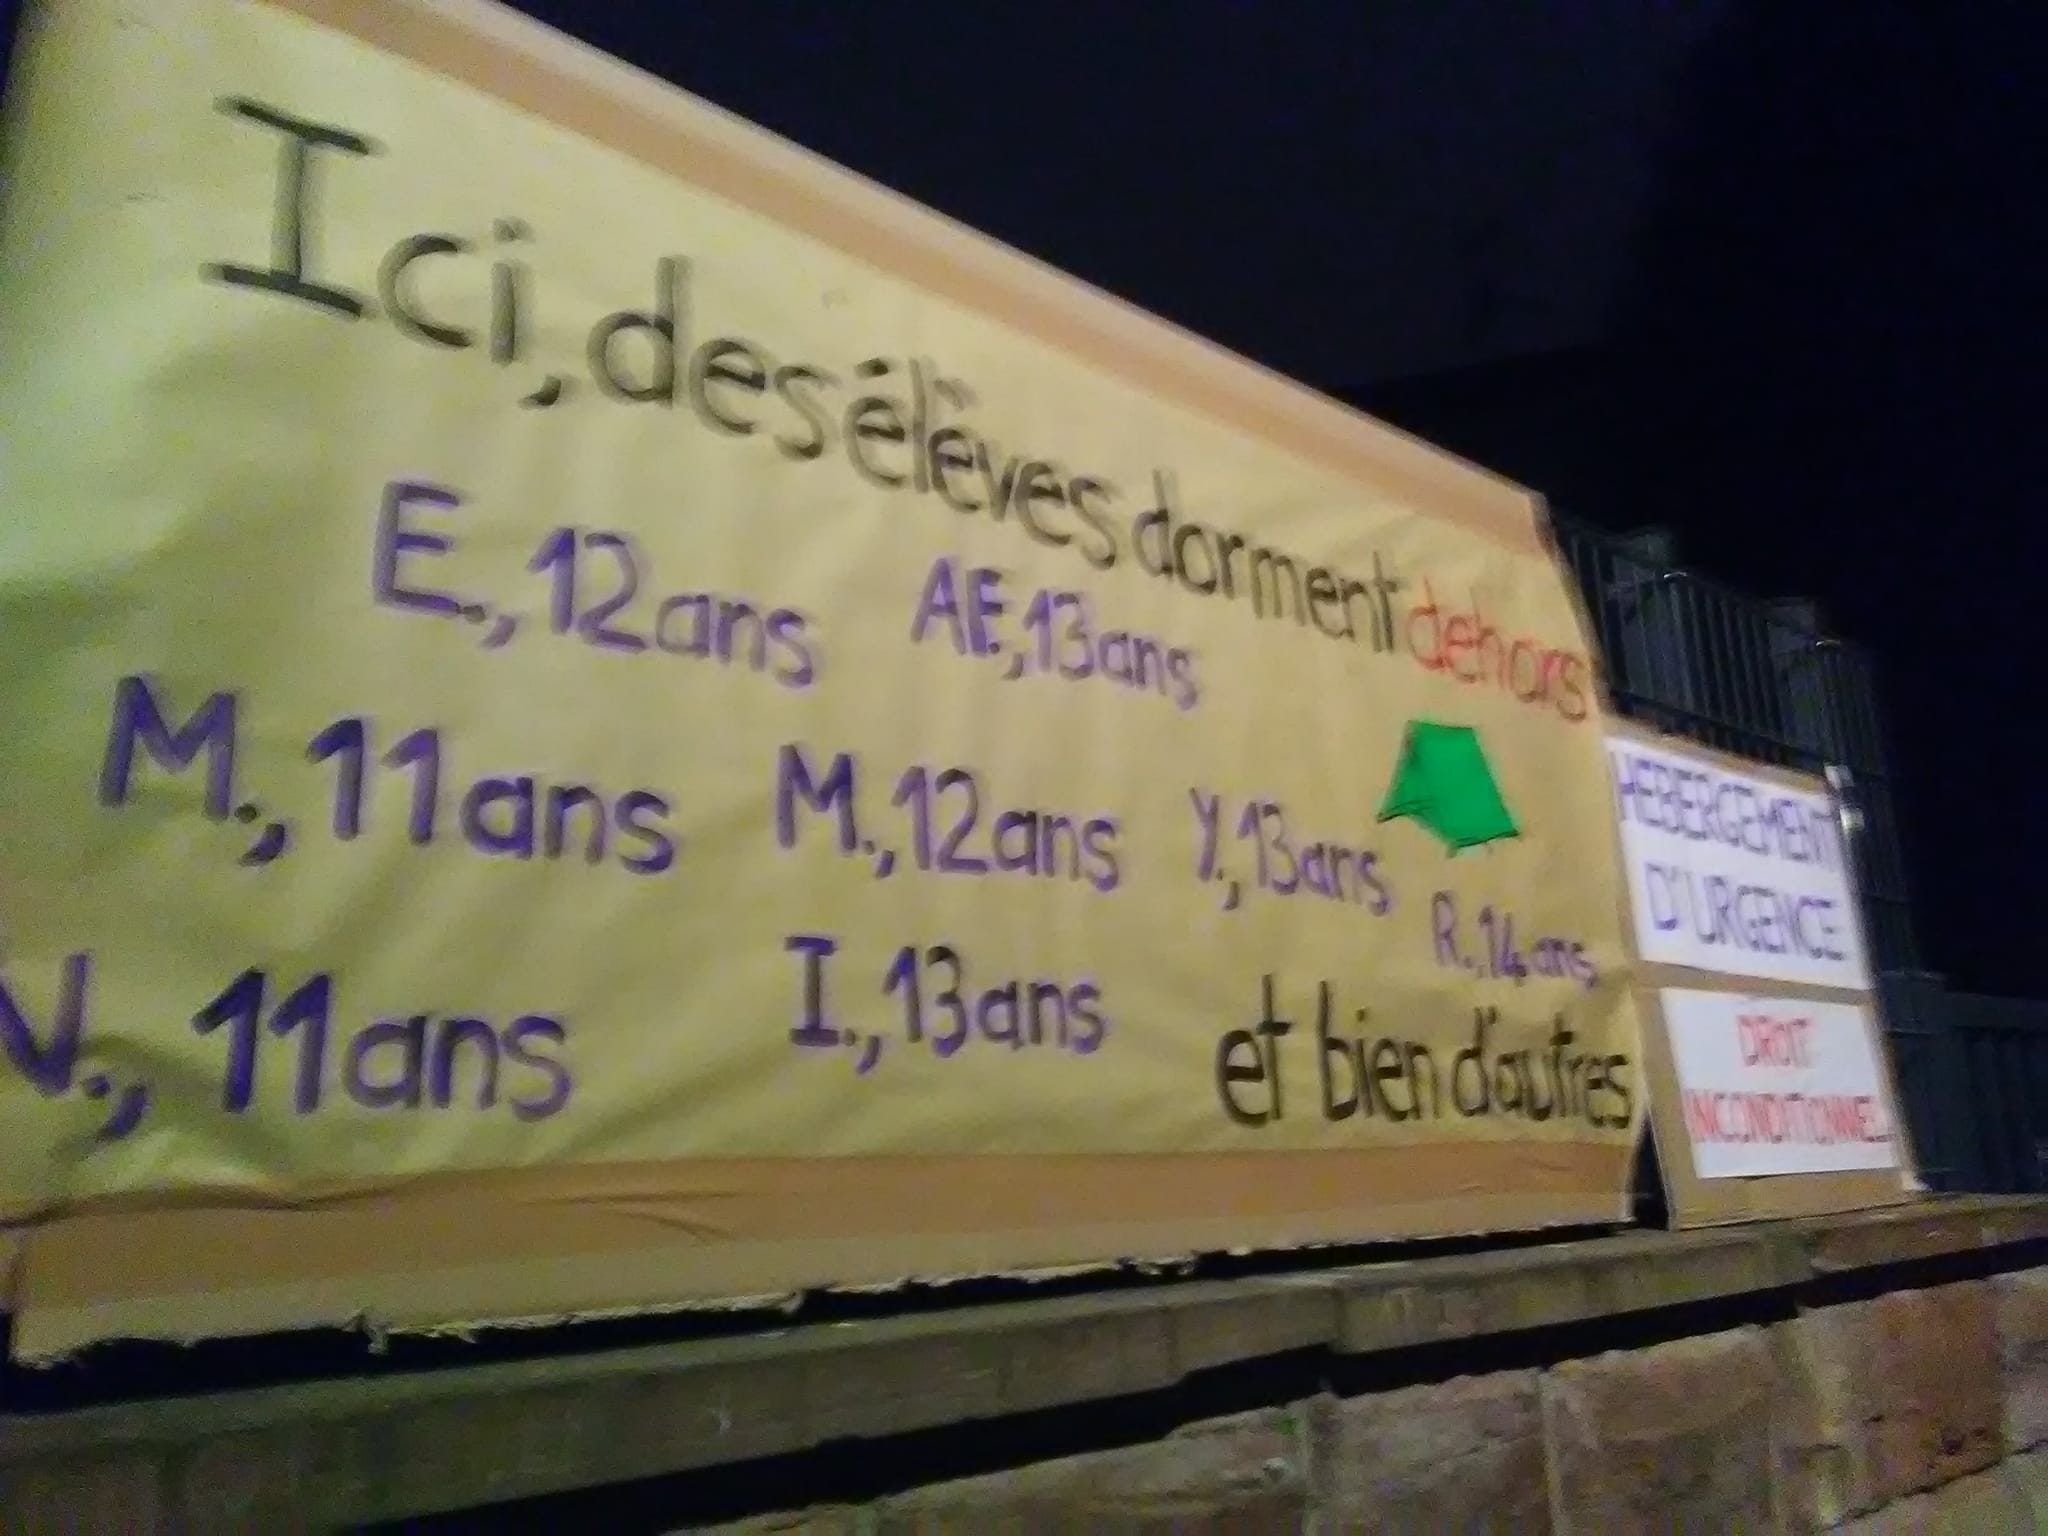 Ici, des élèves dorment dehors
E., 12 ans AE., 13 ans
M., 11 ans M., 12 ans Y., 13 ans R., 14 ans,
V., 11 ans I., 13 ans et bien d'autres
HEBERGEMENT
D'URGENCE
DROIT
INCONDITIONNEL